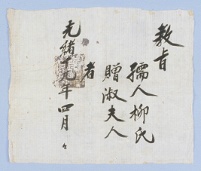 教旨
孺人柳氏
贈淑夫人
者
光緖十九年四月 日